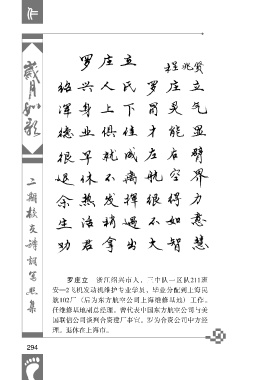 作
岁月如歌
二期校友诗词写照集
罗庄立
程兆贤
绍兴人氏罗庄立
浑身上下冒灵气
德业俱佳才能显
很早就成左右臂
退休不离航空界
余热发挥很得力
生活稍遇不如意
劝君拿出大智慧
罗庄立 浙江绍兴市人，三中队一区队211班
安—2飞机发动机维护专业学员，毕业分配到上海民
航102厂（后为东方航空公司上海维修基地）工作，
任维修基地副总经理。曾代表中国东方航空公司与美
国联信公司谈判合资建厂事宜，并为合资公司中方经
理。退休在上海市。
294